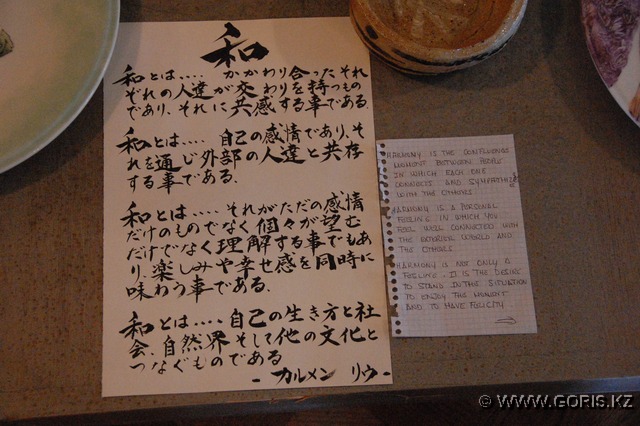 和
和とは‥‥ かかわり合ったそれ
ぞれの人達が交わりを持つもの
であり、それに共感する事である.
和とは‥‥ 自己の感情であり、そ
れを通じ外部の人達と共存
する事である.
和とは‥‥ それがただの感情
だけのものでなく個々が望む
だけでなく理解する事でもあ
り、楽しみや幸せ感を同時に
味わう事である.
和とは‥‥ 自己の生き方と社
会、自然界そして他の文化と
つなぐものである
- カルメン リウ -
HARMONY IS THE CONFLUENCE
MOMENT BETWEEN PEOPLE
IN WHICH EACH ONE
CONNECTS AND SYMPATHIZE
WITH THE OTHERS
HARMONY IS A PERSONAL
FEELING IN WHICH YOU
FEEL WELL CONNECTED WITH
THE EXTERIOR WORLD AND
THE OTHERS
HARMONY IS NOT ONLY A
FEELING. IT IS THE DESIRE
TO STAND IN THE SITUATION
TO ENJOY THE MOMENT
AND TO HAVE FELICITY
© WWW.GORIS.KZ